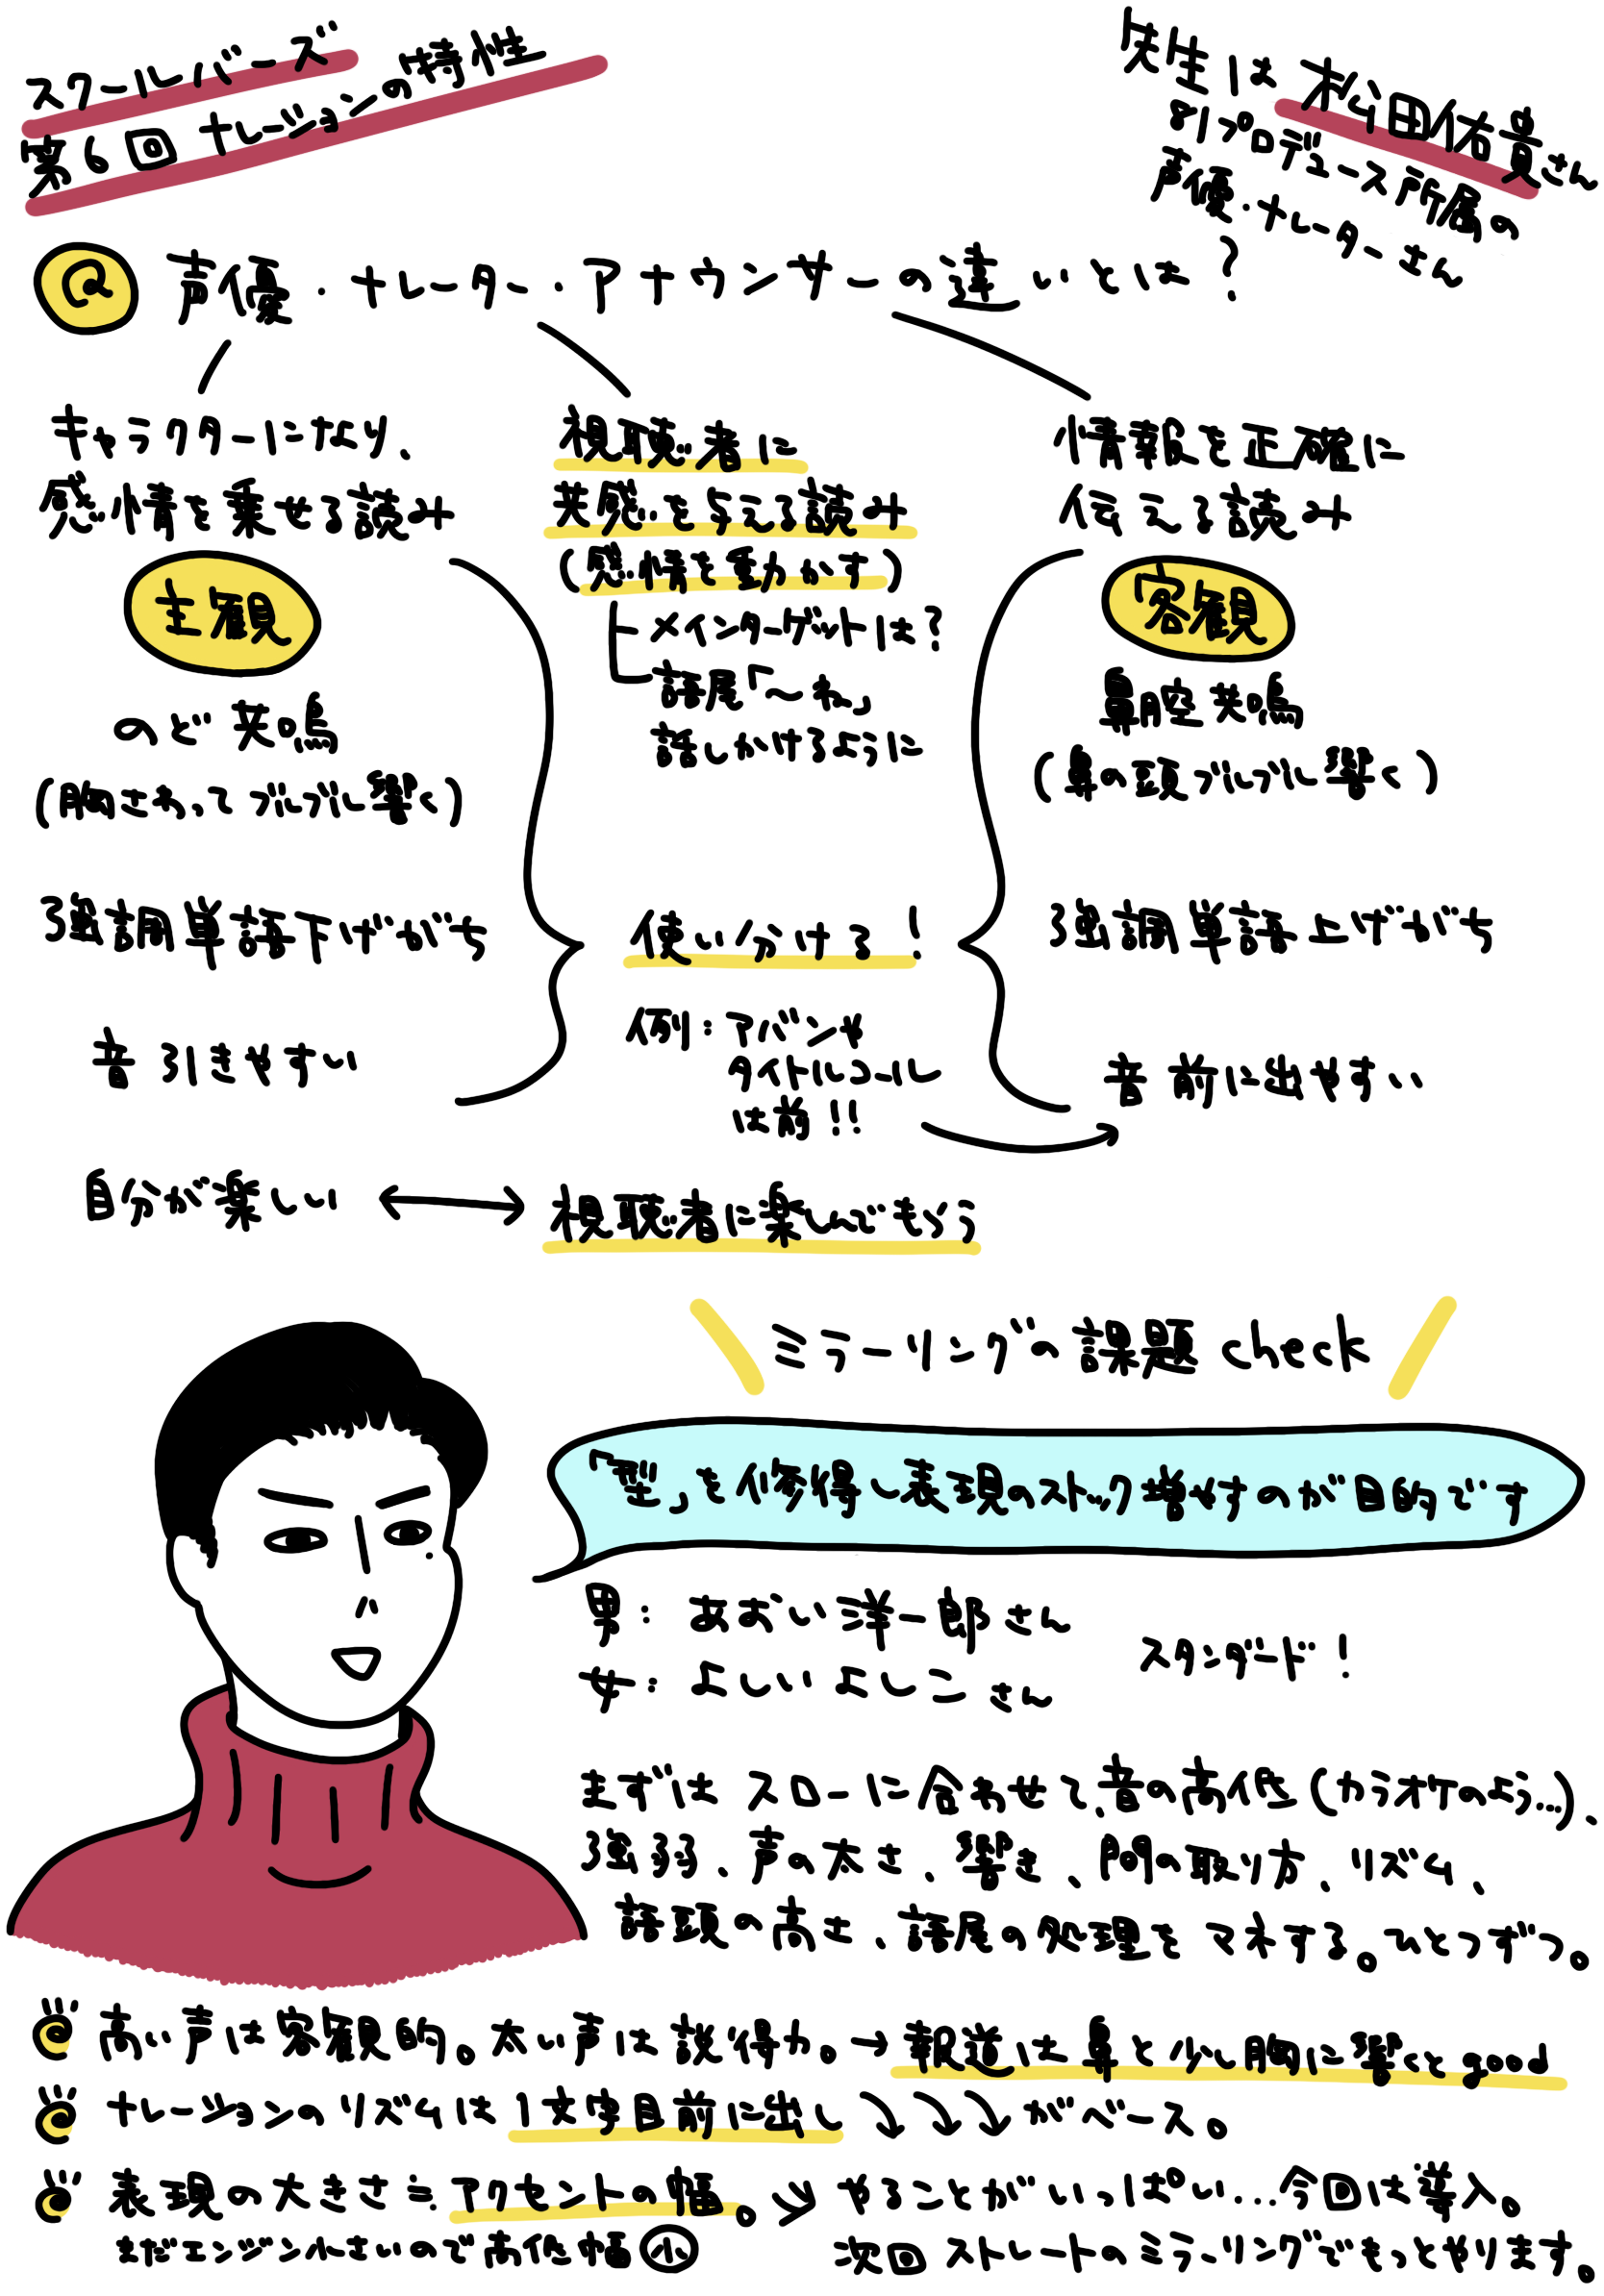 スクールバーズ
第6回 ナレーションの特性
先生は 松田佑貴さん
81プロデュース所属の
声優・ナレーターさん
Q 声優・ナレーター・アナウンサーの違いとは?
キャラクターになり、
感情を乗せる読み
主観
のど共鳴
(胸さわってブルブル響く)
強調単語下げがち
音引きやすい
視聴者に
共感を与える読み
(感情を動かす)
メインターゲットは?
語尾「〜ね」
話しかけるように
使い分ける!
例:アバンや
タイトルコール
は前!!
情報を正確に
伝える読み
客観
鼻腔共鳴
(鼻の頭ブルブル響く)
強調単語上げがち
音前に出やすい
自分が楽しい ↔ 視聴者に楽しんでもらう
ミラーリングの課題check
「型」を修得し表現のストック増やすのが目的です
男:あおい洋一郎さん
女:よしいよしこさん
スタンダード!
まずはスローに合わせて、音の高低(カラオケのよう…)、
強弱、声の太さ、響き、間の取り方、リズム、
語頭の高さ、語尾の処理をマネする。ひとつずつ。
高い声は客観的。太い声は説得力。→報道は鼻と少し胸に響くとgood
ナレーションのリズムは1文字目前に出し↘↘↘がベース。
表現の大きさ≒アクセントの幅。
まだエンジン小さいので高低幅小
→やることがいっぱい…今回は導入。
次回ストレートのミラーリングでもっとやります。